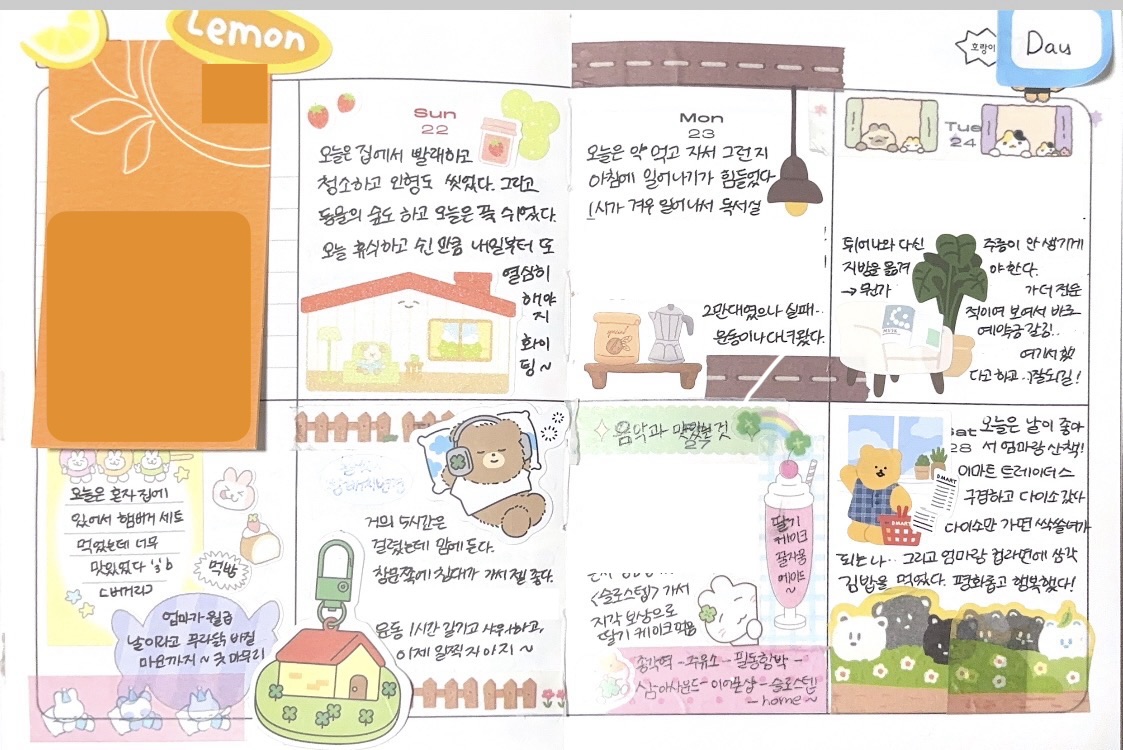 Lemon
Sun
22
오늘은 집에서 빨래하고
청소하고 인형도 씻었다. 그리고
동물의 숲도 하고 오늘은 푹 쉬었다.
오늘 휴식하고 쉰 만큼 내일부터 또
열심히
해야
지
화이
팅~
Mon
23
오늘은 약 먹고 자서 그런지
아침에 일어나기가 힘들었다
1시가 겨우 일어나서 독서실
2만대였으나 실패..
운동이나 다녀왔다.
호랑이
Day
Tue
24
튀어나와 다신
지방을 옮겨
→ 뭔가
주름이 안 생기게
야 한다.
가더 진운
적이여 보여서 바로
예약금 갈김!..
여기서 했
다고 하고..잘되길!
오늘은 혼자 집에
있어서 햄버거 세트
먹었는데 너무
맛있었다
먹방
엄마가 월급
날이라고 푸라닭 바질
마요까지 ~ 굿 마무리
거의 5시간은
걸렸는데 맘에 든다.
창문쪽에 침대가 가서 젤 좋다.
운동 1시간 갈기고 샤워하고,
이제 일찍 자야지 ~
음악과 맛있는 것
27
딸기
케이크
꿀자몽
에이드
~
<슬로스텝> 가서
지각 보상으로
딸기 케이크 먹음
송각역 - 주유소 - 필동함박 -
- 슬로스텝
- home ~
Sat
28
오늘은 날이 좋아
서 엄마랑 산책!
이마트 트레이더스
구경하고 다이소 갔다
다이소만 가면 싹쓸여가
되는 나... 그리고 엄마랑 컵라면에 삼각
김밥을 먹었다. 평화롭고 행복했다!
DMART
DMART